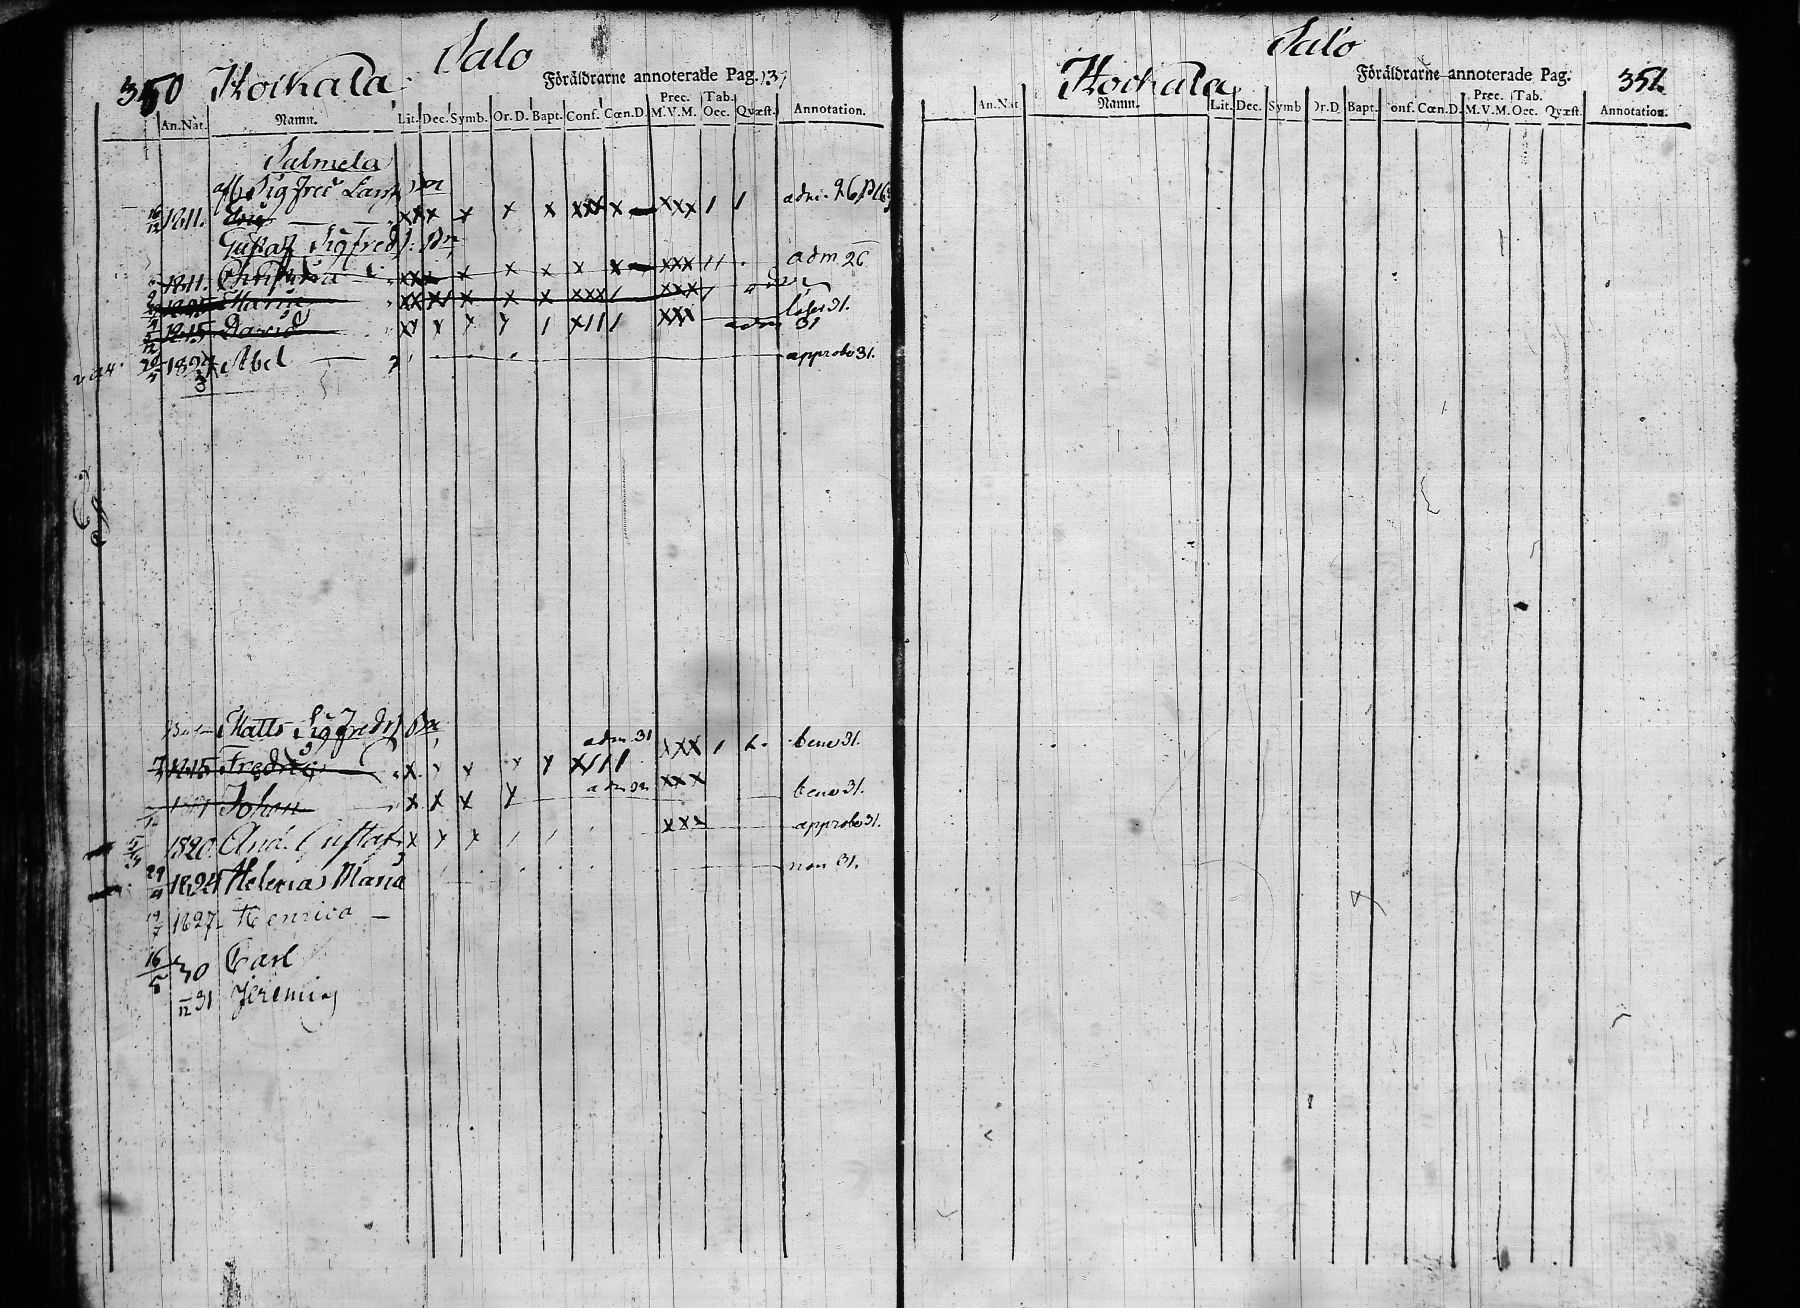 Salo
350 Koikala Föräldrarne annoterade Pag. 13
An. Nat. Namn. Lit. Dec. Symb. Or. D. Bapt. Conf. Cœn. D. Prec. M. V. M. Tab. Oec. Qvæst. Annotation.
Salmela
Sigfred
16/12 1811. xxx x x x xxx x xxx 1 1
Gustaf Sigfreds: Bn
1811. Christina xxx x x x x x xxx 11 adm 26
Maria xxx x x x xxx xxx
1815 David xx x x x 1 x111 xxx adm 31
1824 Abel approbe 31.
Matts Sigfreds Bn
adm 31
1815 Fredric x x x x x x111 xxx 1 bene 31.
Johan x x x x xxx bene 31.
1820. And. Gustaf x x x xxx approbe 31.
29/4 1824 Helena Maria non 31.
19/7 1827 Henrica
16/5 30 Carl
/12 31 Jeremias
Salo
Koikala Föräldrarne annoterade Pag. 351.
An. Nat Namn. Lit. Dec. Symb Or. D Bapt. Conf. Cœn. D. Prec. M. V. M. Tab. Oec. Qvæst. Annotation.